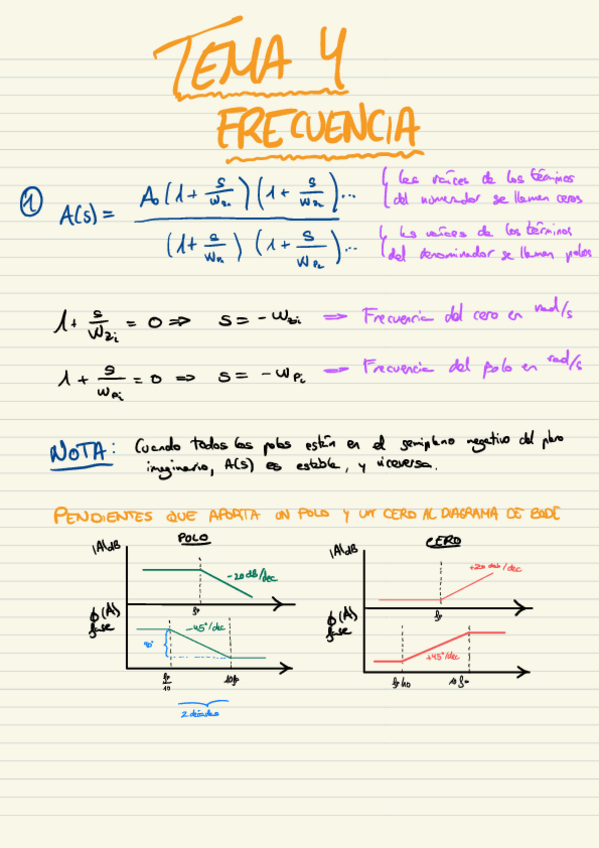 TEMA 4
FRECUENCIA
① A(s) = A₀(1 + s/ω_z₁)(1 + s/ω_z₂)... / (1 + s/ω_p₁)(1 + s/ω_p₂)...
Las raíces de los términos
del numerador se llaman ceros
Las raíces de los términos
del denominador se llaman polos
1 + s/ω_zi = 0 ⇒ s = -ω_zi ⇒ Frecuencia del cero en rad/s
1 + s/ω_pi = 0 ⇒ s = -ω_pi → Frecuencia del polo en rad/s
NOTA: Cuando todos los polos están en el semiplano negativo del plano
imaginario, A(s) es estable, y viceversa.
PENDIENTES QUE APORTA UN POLO Y UN CERO AL DIAGRAMA DE BODE
POLO
|A|dB
-20 dB/dec
fp
ϕ(A)
fase
-45°/dec
90°
fp/10
10fp
2 décadas
CERO
|A|dB
+20 dB/dec
ϕ(A)
fase
+45°/dec